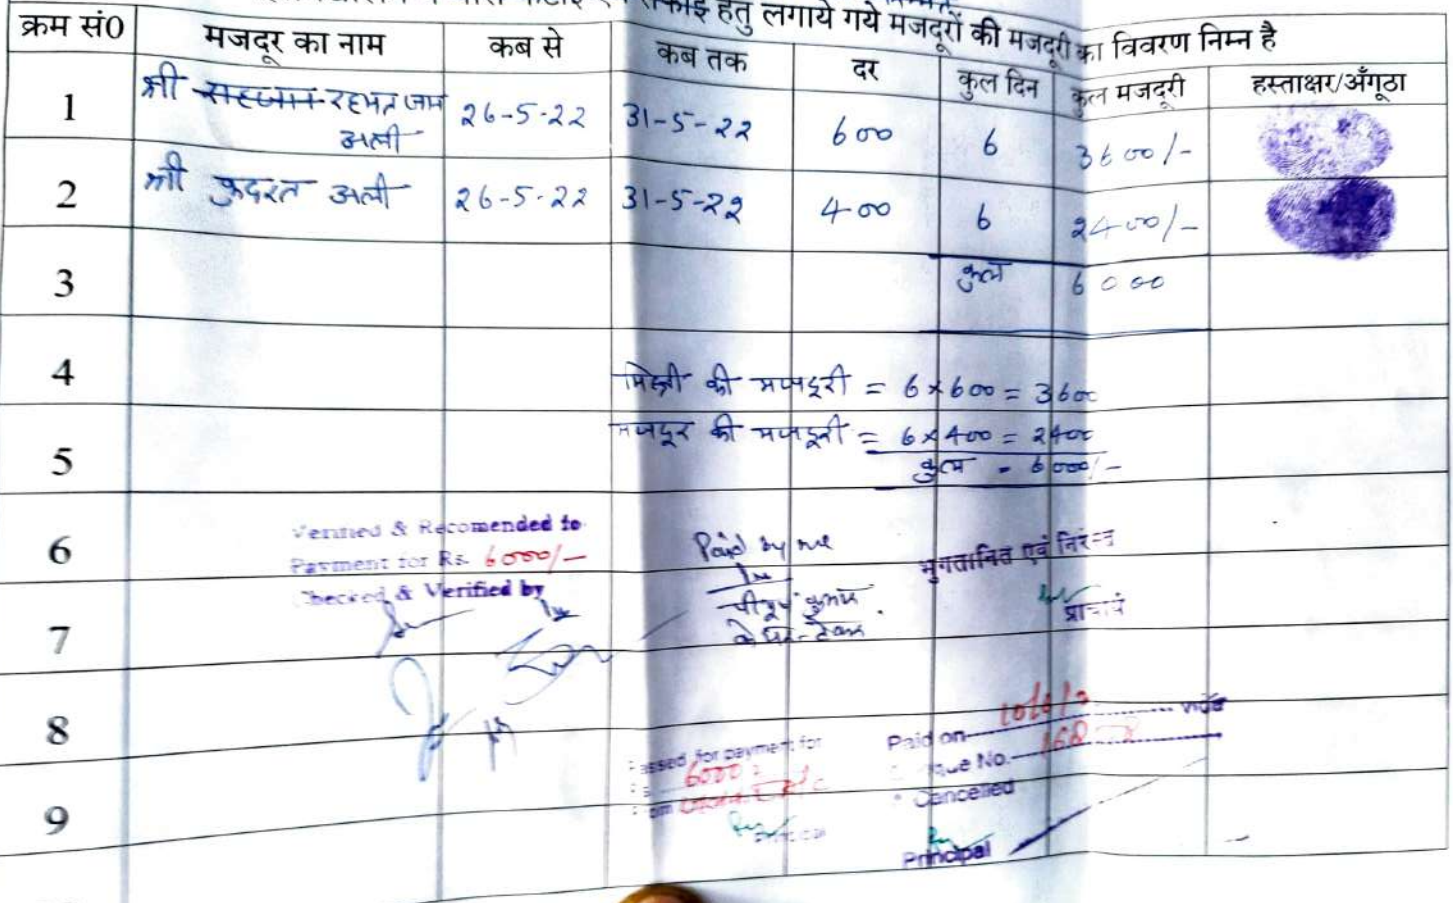 हेतु लगाये गये मजदूरों की मजदूरी का विवरण निम्न है
क्रम सं0 मजदूर का नाम कब से कब तक दर कुल दिन कुल मजदूरी हस्ताक्षर/अँगूठा
1 श्री रहमत अली 26-5-22 31-5-22 600 6 3600/-
2 श्री कुदरत अली 26-5-22 31-5-22 400 6 2400/-
3 कुल 6000
4 मिस्त्री की मजदूरी = 6×600 = 3600
5 मजदूर की मजदूरी = 6×400 = 2400
कुल = 6000/-
6
Verified & Recomended to
Payment for Rs. 6000/-
Checked & Verified by
Paid by me
कुमार
भुगतानित एवं निरस्त
प्राचार्य
7
8
Passed for payment for
6000
Principal
Paid on vide
que No. 168
Cancelled
Principal
9